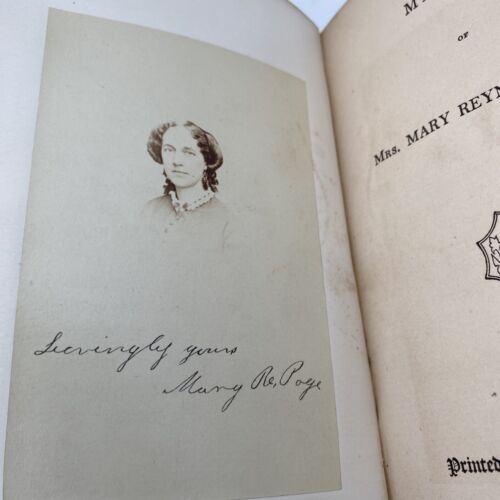 Lovingly yours
Mary R. Page
M
OF
MRS. MARY REYN
Printed